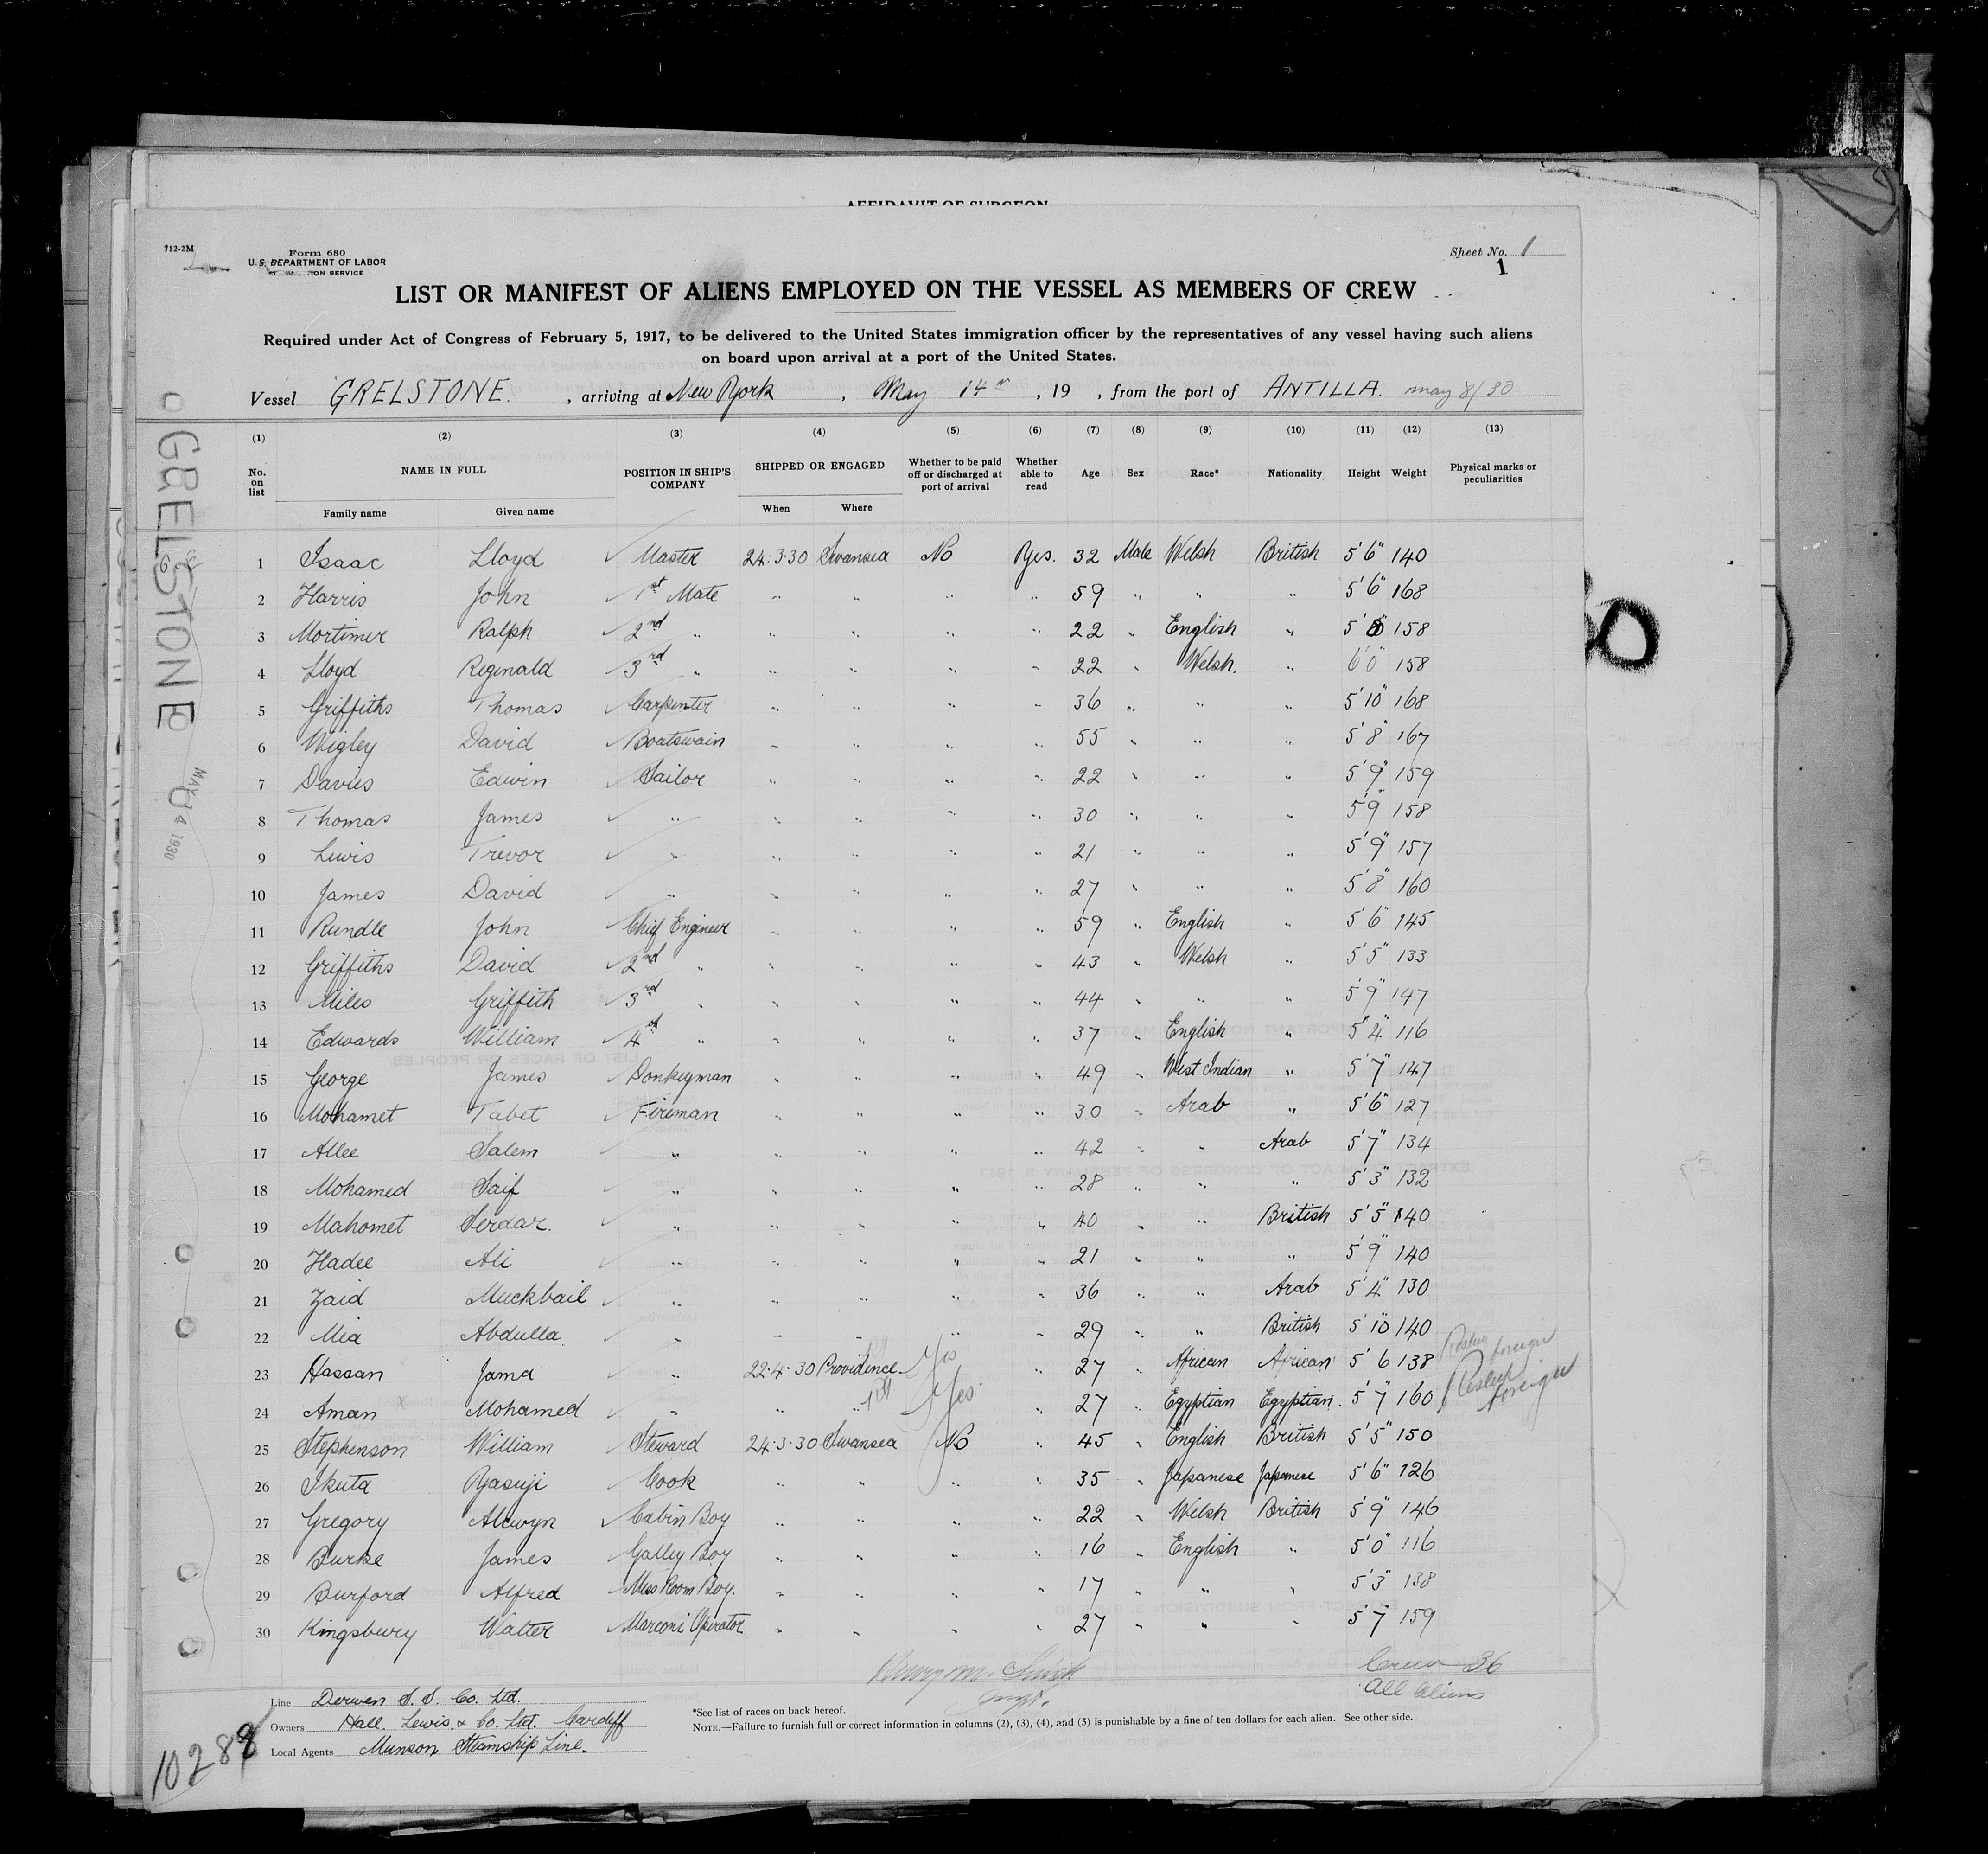 AFFIDAVIT OF SURGEON
712-2M
Form 680
U.S. DEPARTMENT OF LABOR
ON SERVICE
Sheet No. 1
1
LIST OR MANIFEST OF ALIENS EMPLOYED ON THE VESSEL AS MEMBERS OF CREW
Required under Act of Congress of February 5, 1917, to be delivered to the United States immigration officer by the representatives of any vessel having such aliens
on board upon arrival at a port of the United States.
Vessel GRELSTONE. , arriving at New York , May 14th , 19 , from the port of ANTILLA. may 8/30
(1) (2) (3) (4) (5) (6) (7) (8) (9) (10) (11) (12) (13)
No. on list NAME IN FULL Family name Given name POSITION IN SHIP'S COMPANY SHIPPED OR ENGAGED When Where Whether to be paid off or discharged at port of arrival Whether able to read Age Sex Race* Nationality Height Weight Physical marks or peculiarities
1 Isaac Lloyd Master 24.3.30 Swansea No Yes. 32 Male Welsh British 5'6" 140
2 Harris John 1st Mate " " " " 59 " " " 5'6" 168
3 Mortimer Ralph 2nd " " " " " 22 " English " 5' 158
4 Lloyd Reginald 3rd " " " " " 22 " Welsh. " 6'0" 158
5 Griffiths Thomas Carpenter " " " " 36 " " " 5'10" 168
6 Wigley David Boatswain " " " " 55 " " " 5'8" 167
7 Davies Edwin Sailor " " " " 22 " " " 5'9" 159
8 Thomas James " " " " " 30 " " " 5'9" 158
9 Lewis Trevor " " " " " 21 " " " 5'9" 157
10 James David " " " " " 27 " " " 5'8" 160
11 Rundle John Chief Engineer " " " " 59 " English " 5'6" 145
12 Griffiths David 2nd " " " " " 43 " Welsh " 5'5" 133
13 Miles Griffith 3rd " " " " " 44 " " " 5'9" 147
14 Edwards William 4th " " " " " 37 " English " 5'4" 116
15 George James Donkeyman " " " " 49 " West Indian " 5'7" 147
16 Mohamet Tabet Fireman " " " " 30 " Arab " 5'6" 127
17 Allee Salem " " " " " 42 " " Arab 5'7" 134
18 Mohamed Saif " " " " " 28 " " " 5'3" 132
19 Mahomet Serdar. " " " " " 40 " " British 5'5" 140
20 Hadee Ali " " " " " 21 " " " 5'9" 140
21 Zaid Muckbail " " " " " 36 " " Arab 5'4" 130
22 Mia Abdulla " " " " " 29 " " British 5'10" 140
23 Hassan Jama " 22.4.30 Providence Yes " 27 " African African 5'6 138 foreign
24 Aman x Mohamed " " " RI Yes " 27 " Egyptian Egyptian. 5'7" 160 foreign
25 Stephenson William Steward 24.3.30 Swansea No " 45 " English British 5'5" 150
26 Ikuta Yasuji Cook " " " " 35 " Japanese Japanese 5'6" 126
27 Gregory Alewyn Cabin Boy " " " " 22 " Welsh British 5'9" 146
28 Burke James Galley Boy " " " " 16 " English " 5'0" 116
29 Burford Alfred Mess Room Boy. " " " " 17 " " " 5'3" 138
30 Kingsbury Walter Marconi Operator " " " " 27 " " " 5'7" 159
Crew 36
All aliens
Line Derwen S.S. Co. Ltd.
Owners Hall. Lewis. & Co. Ltd. Cardiff
Local Agents Munson Steamship Line.
*See list of races on back hereof.
NOTE.—Failure to furnish full or correct information in columns (2), (3), (4), and (5) is punishable by a fine of ten dollars for each alien. See other side.
GRELSTONE
MAY 14 1930